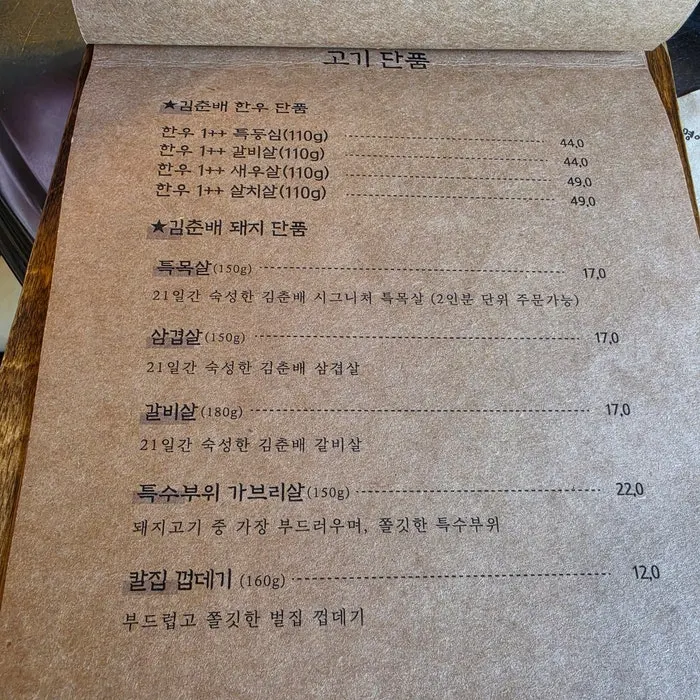 고기 단품
★김춘배 한우 단품
한우 1++ 특등심(110g) 44,0
한우 1++ 갈비살(110g) 44,0
한우 1++ 새우살(110g) 49,0
한우 1++ 살치살(110g) 49,0
★김춘배 돼지 단품
특목살(150g) 17,0
21일간 숙성한 김춘배 시그니처 특목살 (2인분 단위 주문가능)
삼겹살(150g) 17,0
21일간 숙성한 김춘배 삼겹살
갈비살(180g) 17,0
21일간 숙성한 김춘배 갈비살
특수부위 가브리살(150g) 22,0
돼지고기 중 가장 부드러우며, 쫄깃한 특수부위
칼집 껍데기 (160g) 12,0
부드럽고 쫄깃한 벌집 껍데기